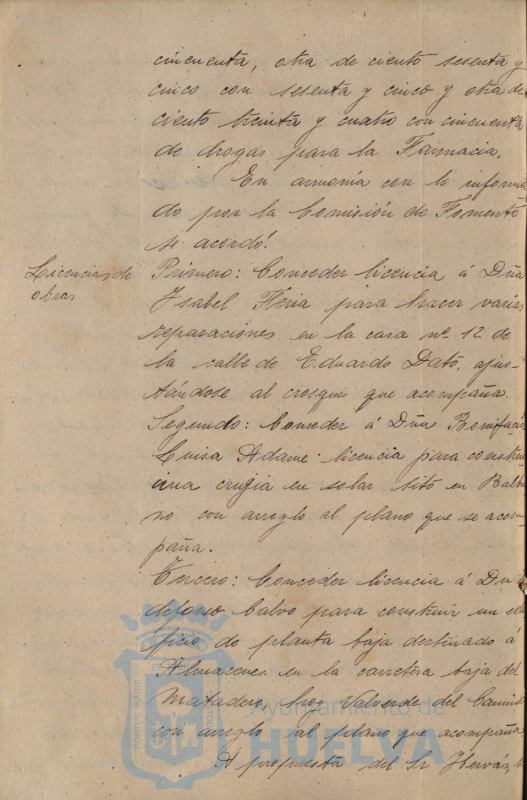 cincuenta, otra de ciento sesenta y
cinco con sesenta y cinco y otra de
ciento treinta y cuatro con cincuenta
de drogas para la Farmacia.
En armonía con lo informa
do por la Comisión de Fomento
se acordó:
Licencias de
obras
Primero: Conceder licencia á Dña
Isabel Feria para hacer varias
reparaciones en la casa nº 12 de
la calle de Eduardo Dato, ajus-
tándose al crosquis que acompaña.
Segundo: Conceder á Dña Bonifacia
Luisa Adame licencia para construir
una crujia en solar sito en Balbu
no con arreglo al plano que se acom-
paña.
Tercero: Conceder licencia á Dn
defonso Calvo para construir un edi
ficio de planta baja destinado á
Almacenes en la carretera baja del
Matadero, hoy Valverde del Camino
con arreglo al plano que acompaña
A propuesta del Sr Hervás,
Ayuntamiento de
HUELVA
PORTUS MARIS